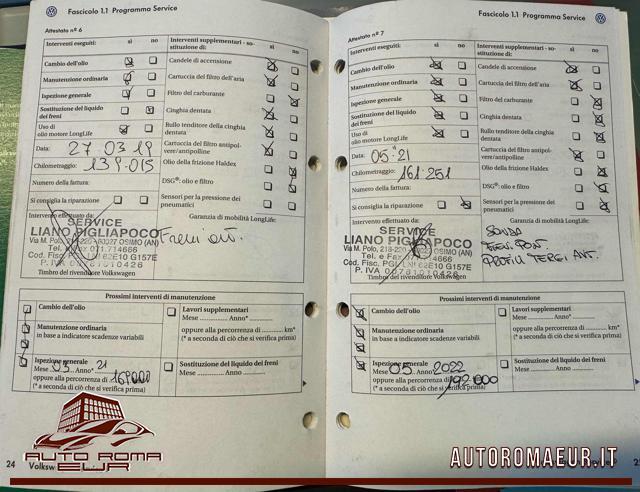 Fascicolo 1.1 Programma Service
Attestato n° 6
Interventi eseguiti: sì no
Cambio dell'olio
Manutenzione ordinaria
Ispezione generale
Sostituzione del liquido
dei freni
Uso di
olio motore LongLife
Data: 27 03 19
Chilometraggio: 139.015
Numero della fattura:
Si consiglia la riparazione
Interventi supplementari - so-
stituzione di: sì no
Candele di accensione
Cartuccia del filtro dell'aria
Filtro del carburante
Cinghia dentata
Rullo tenditore della cinghia
dentata
Cartuccia del filtro antipol-
vere/antipolline
Olio della frizione Haldex
DSG®: olio e filtro
Sensori per la pressione dei
pneumatici
Intervento effettuato da:
SERVICE
LIANO PIGLIAPOCO
Via M. Polo, OSIMO (AN)
Tel. 071.714666
Cod. Fisc. PGL 62E10 G157E
P. IVA
Timbro del rivenditore Volkswagen
Garanzia di mobilità LongLife:
Prossimi interventi di manutenzione
Cambio dell'olio
Manutenzione ordinaria
in base a indicatore scadenze variabili
Ispezione generale
Mese 03 Anno* 21
oppure alla percorrenza di 169000
(* a seconda di ciò che si verifica prima)
Lavori supplementari
Mese Anno*
oppure alla percorrenza di km*
(* a seconda di ciò che si verifica prima)
Sostituzione del liquido dei freni
Mese Anno
24 Volksw
AUTO ROMA
EUR
Fascicolo 1.1 Programma Service
Attestato n° 7
Interventi eseguiti: sì no
Cambio dell'olio
Manutenzione ordinaria
Ispezione generale
Sostituzione del liquido
dei freni
Uso di
olio motore LongLife
Data: 05 21
Chilometraggio: 161.251
Numero della fattura:
Si consiglia la riparazione
Interventi supplementari - so-
stituzione di: sì no
Candele di accensione
Cartuccia del filtro dell'aria
Filtro del carburante
Cinghia dentata
Rullo tenditore della cinghia
dentata
Cartuccia del filtro antipol-
vere/antipolline
Olio della frizione Haldex
DSG®: olio e filtro
Sensori per la pressione dei
pneumatici
Intervento effettuato da:
SERVICE
LIANO PIGLIAPOCO
Via M. Polo, OSIMO (AN)
Tel. e Fax
Cod. Fisc. PGL 62E10 G157E
P. IVA
Timbro del rivenditore Volkswagen
Garanzia di mobilità LongLife:
SONDA
Prossimi interventi di manutenzione
Cambio dell'olio
Manutenzione ordinaria
in base a indicatore scadenze variabili
Ispezione generale
Mese 05 Anno 2022
oppure alla percorrenza di 192000
(* a seconda di ciò che si verifica prima)
Lavori supplementari
Mese Anno*
oppure alla percorrenza di km*
(* a seconda di ciò che si verifica prima)
Sostituzione del liquido dei freni
Mese Anno
AUTOROMAEUR.IT